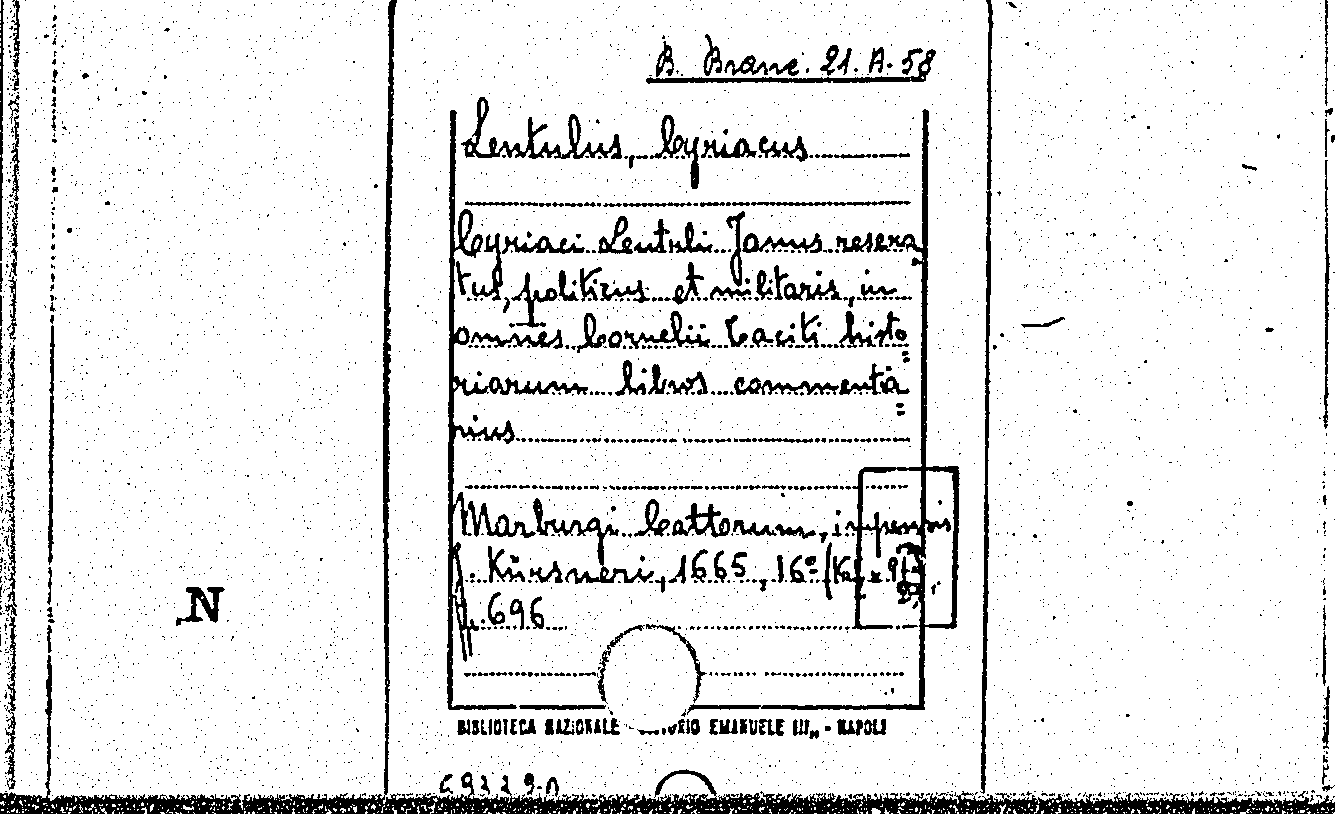 B. Branc. 21. A. 58
Lentulus, Cyriacus
Cyriaci Lentuli Janus resera
tus, politicus et militaris, in
omnes Cornelii Taciti histo
=
riarum libros commenta
=
rius
Marburgi Cattorum, impensis
J. Kürsneri, 1665, 16°
pp. 696
N
BIBLIOTECA NAZIONALE EMANUELE III„ - NAPOLI